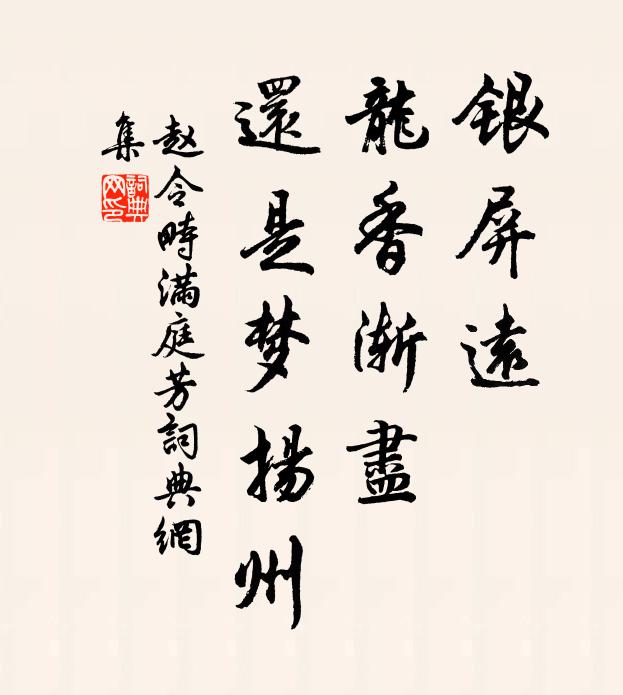 銀屏遠
龍香渐盡
還是梦揚州
赵令畤满庭芳詞典網
集
詞典
网印